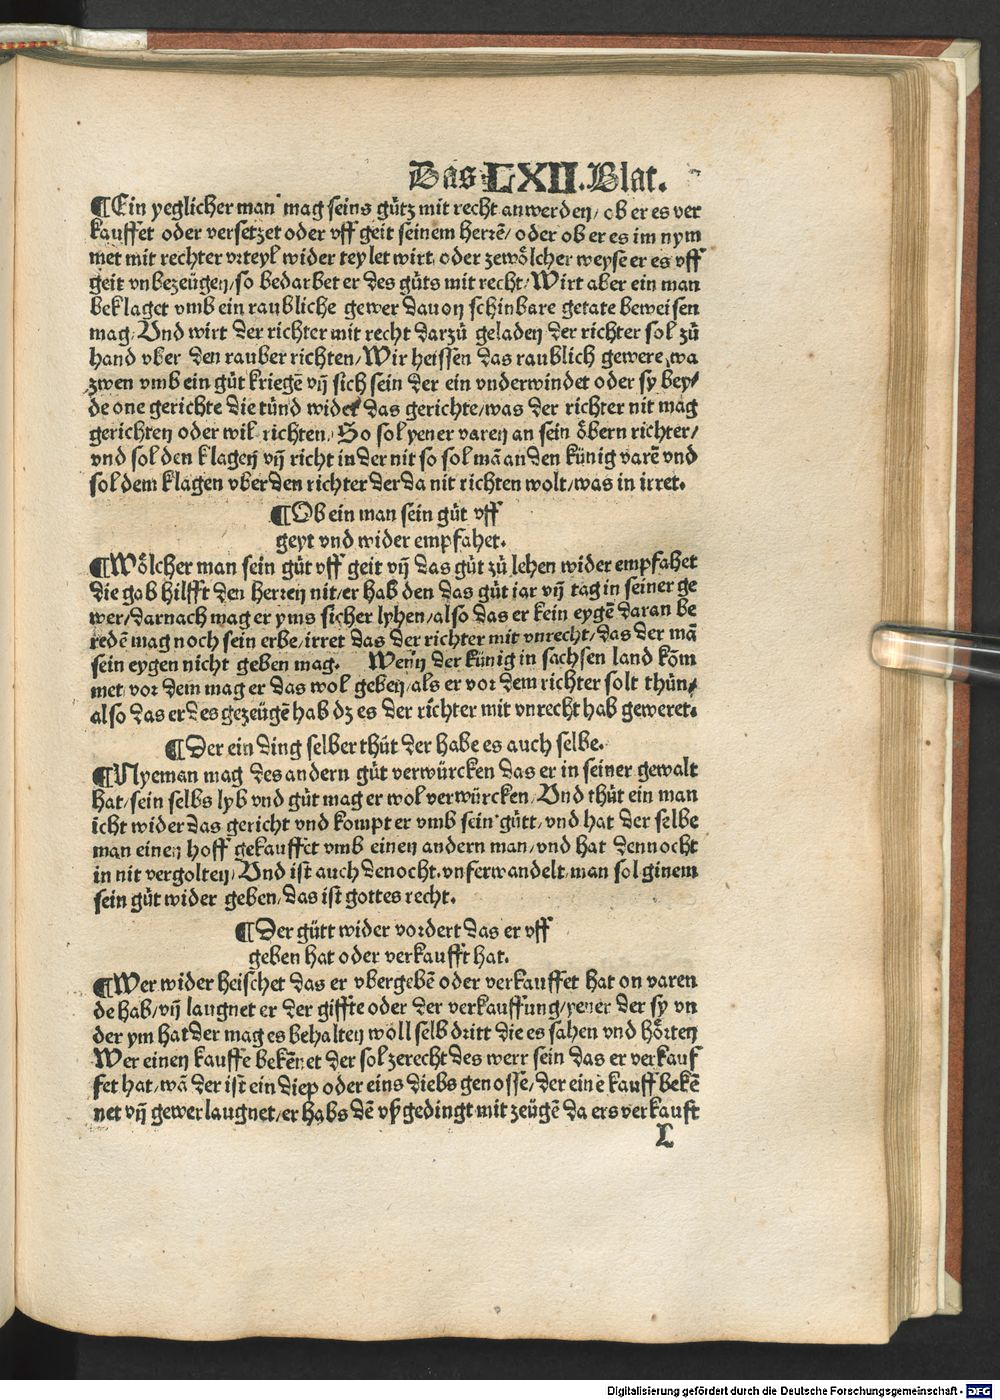 Das LXII. Blat.
¶Ein yeglicher man mag seins gůtz mit recht anwerden/ ob er es ver
kauffet oder versetzet oder vff geit seinem herrē/ oder ob er es im nym
met mit rechter vrteyl wider teylet wirt/ oder zewőlcher weyse er es vff
geit vnbezeügen/ so bedarbet er des gůts mit recht/ Wirt aber ein man
beklaget vmb ein raubliche gewer dauon schinbare getate beweisen
mag/ Vnd wirt der richter mit recht darzů geladen der richter sol zů
hand vber den rauber richten/ Wir heissen das raublich gewere/ wa
zwen vmb ein gůt kriegē vñ sich sein der ein vnderwindet oder sy bey/
de one gerichte die tůnd wider das gerichte/ was der richter nit mag
gerichten oder wil richten/ So sol yener varen an sein őbern richter/
vnd sol den klagen vñ richt in der nit so sol mā an den künig varē vnd
sol dem klagen vber den richter der da nit richten wolt/ was in irret.
¶Ob ein man sein gůt vff
geyt vnd wider empfahet.
¶Wőlcher man sein gůt vff geit vñ das gůt zů lehen wider empfahet
die gab hilfft den herren nit/ er hab den das gůt iar vñ tag in seiner ge
wer/ darnach mag er yms sicher lyhen/ also das er kein eygē daran be
redē mag noch sein erbe/ irret das der richter mit vnrecht/ das der mā
sein eygen nicht geben mag. Wenn der künig in sachsen land kőm
met/ vor dem mag er das wol geben/ als er vor dem richter solt thůn/
also das er des gezeügē hab dz es der richter mit vnrecht hab geweret.
¶Der ein ding selber thůt der habe es auch selbe.
¶Nyeman mag des andern gůt verwürcken das er in seiner gewalt
hat/ sein selbs lyb vnd gůt mag er wol verwürcken/ Vnd thůt ein man
icht wider das gericht vnd kompt er vmb sein gůtt/ vnd hat der selbe
man einen hoff gekauffet vmb einen andern man/ vnd hat dennocht
in nit vergolten/ Vnd ist auch denocht vnferwandelt/ man sol ginem
sein gůt wider geben/ das ist gottes recht.
¶Der gůtt wider vordert das er vff
geben hat oder verkaufft hat.
¶Wer wider heischet das er vbergebē oder verkauffet hat on varen
de hab/ vñ laugnet er der giffte oder der verkauffung/ yener der sy vn
der ym hat der mag es behalten wőll selb dritt die es sahen vnd hőrten
Wer einen kauffe bekēnet der sol zerecht des werr sein das er verkauf
fet hat/ wā der ist ein diep oder eins diebs genosse/ der eine kauff bekē
net vñ gewer laugnet/ er habs dē vꝑ gedingt mit zeügē da ers verkauft
L
Digitalisierung gefördert durch die Deutsche Forschungsgemeinschaft - DFG